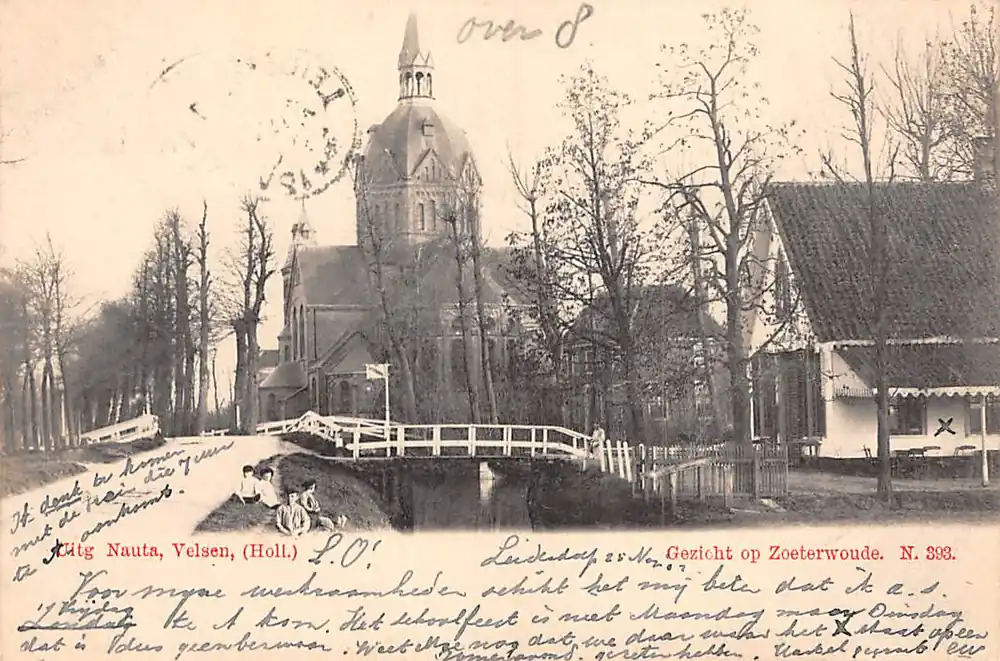 over 8
Ik denk te komen
met de trein die
te aankomt.
Uitg Nauta, Velsen, (Holl.)
L.O!
Leiderdorp 25 Nov.
Gezicht op Zoeterwoude. N. 393.
Voor myne werkzaamheden schikt het my beter dat ik a.s.
Vrijdag
Zondag te kom. Het schoolfeest is niet Maandag maar Dinsdag
dat is dus geen bezwaar. Weet Mae nog dat we daar waar het X staat op een
Zomeravond gezeten hebben.